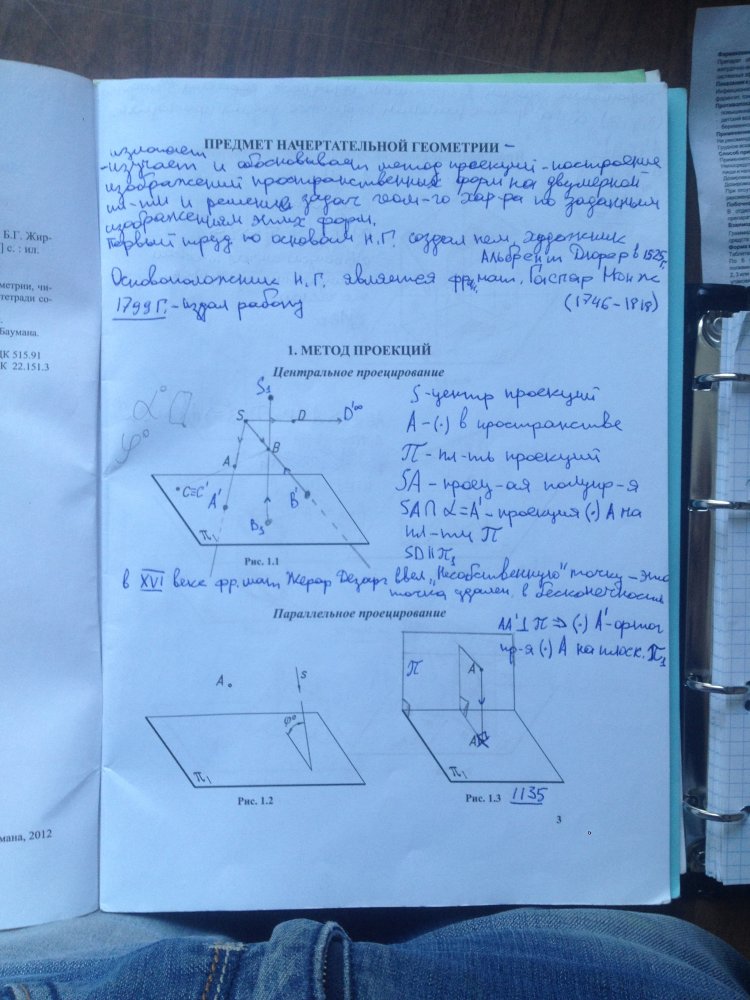 Б.Г. Жир-
] с. : ил.
метрии, чи-
тетради со-
Баумана.
ДК 515.91
К 22.151.3
мана, 2012
ПРЕДМЕТ НАЧЕРТАТЕЛЬНОЙ ГЕОМЕТРИИ –
излагает
-изучает и обосновывает метод проекций - построение
изображений пространственных форм на двумерной
пл-ти и решению задач геом-го хар-ра по заданным
изображениям этих форм.
Первый труд по основам Н.Г. создал нем. художник
Альбрехт Дюрер в 1525г.
Основоположник Н.Г. является фр. мат. Гаспар Монж
1799 г. - издал работу (1746-1818)
1. МЕТОД ПРОЕКЦИЙ
Центральное проецирование
α° α
φ°
S1
S
D
D'∞
A
B
C≡C'
A'
B'
B1
П1
Рис. 1.1
S - центр проекций
A - (·) в пространстве
П - пл-ть проекций
SA - проец-ая полупр-я
SA ∩ α = A' - проекция (·) A на
пл-ти П
SD ∥ П1
в XVI веке фр. мат. Жерар Дезарг ввел „Несобственную" точку - это
точка удален. в бесконечность
Параллельное проецирование
AA' ⊥ П ⇒ (·) A' - ортог
пр-я (·) A на плоск. П1
A
S
φ°
П1
Рис. 1.2
П
A
П1
Рис. 1.3
1135
3